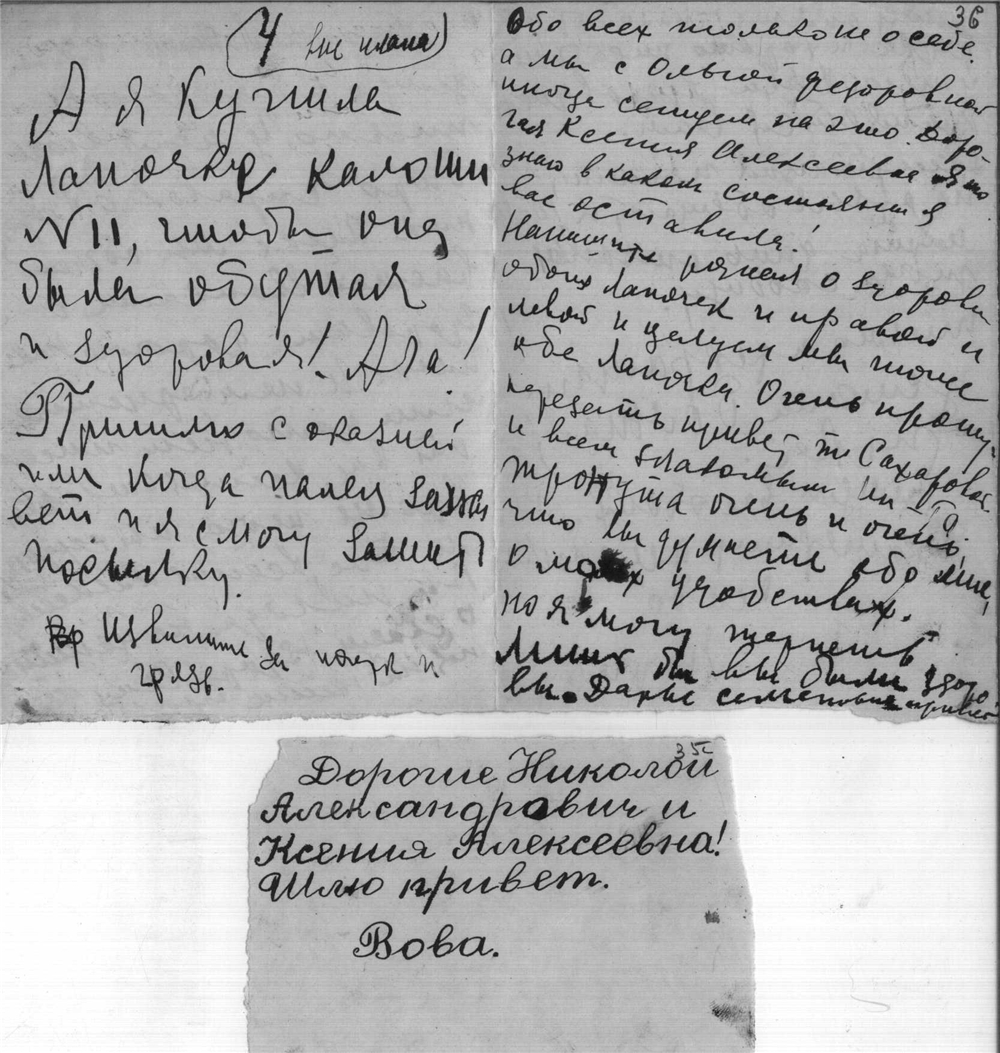 4 вне плана
А я купила
Лапочке калоши
N 11, чтобы она
была обутая
и здоровая! Ага!
Пришлю с оказией
или когда палец зажи
вет и я смогу зашить
посылку.
Извините за и
грязь.
36
обо всех только не о себе.
а мы с Ольгой Федоровной
иногда сетуем на это. Доро-
гая Ксения Алексеевна я
знаю в каком состоянии я
вас оставила!
Напишите о здоровьи
обоих Лапочек и правой и
левой и целуем мы тоже
обе Лапочки. Очень прошу
передать привет Сахаровой
и всем знакомым
тронута очень и очень,
что Вы думаете обо мне,
о моих удобствах.
но я могу терпеть
Лишь бы вы были здоро
вы. Дарье Семеновне привет
35с
Дорогие Николай
Александрович и
Ксения Алексеевна!
Шлю привет.
Вова.